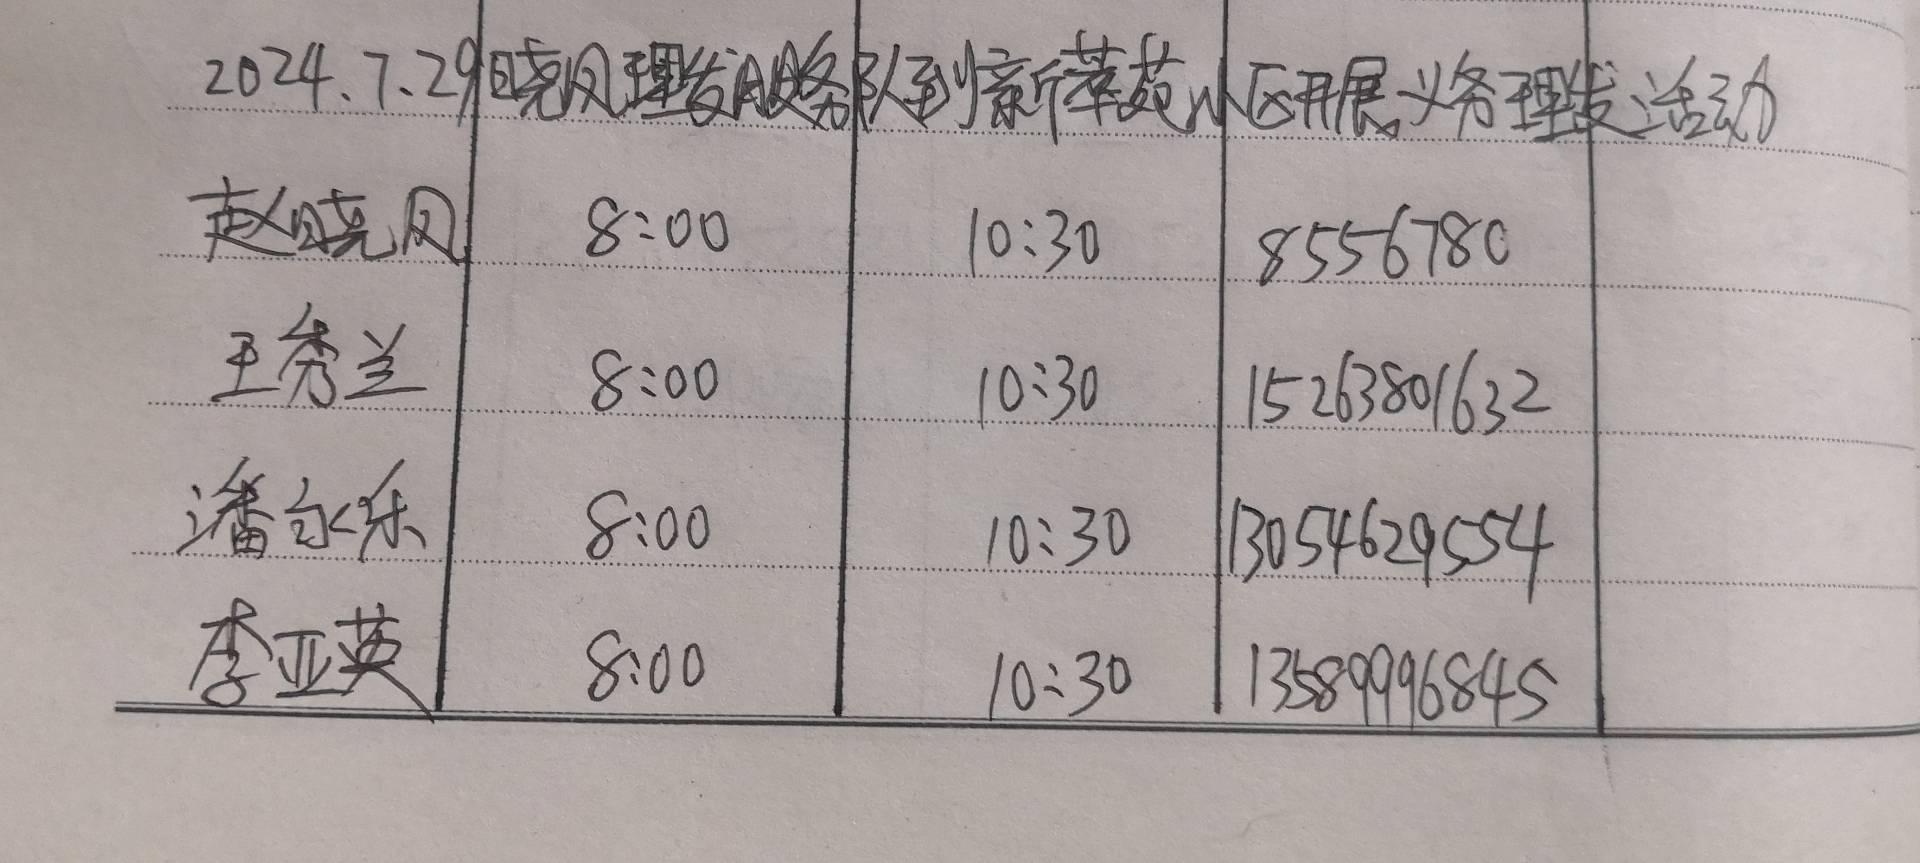 2024.7.29晓风理发服务队到新萃苑小区开展义务理发活动
赵晓风 8:00 10:30 8556780
王秀兰 8:00 10:30 15263801632
潘永乐 8:00 10:30 13054629554
李亚英 8:00 10:30 13589996845